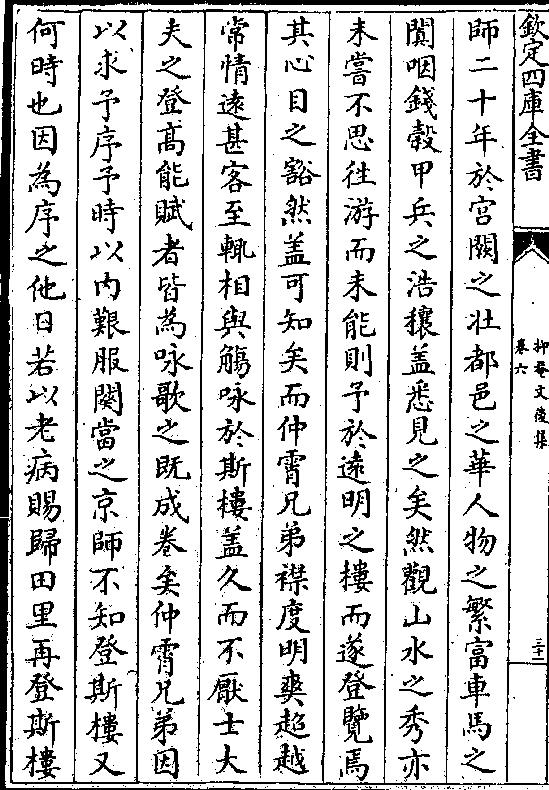 欽定四庫全書
抑菴文後集
卷六
三十二
師二十年於宫闕之壯都邑之華人物之繁富車馬之
闐咽錢榖甲兵之浩穰盖悉見之矣然觀山水之秀亦
未嘗不思徃游而未能則予於逺明之樓而遂登覽焉
其心目之豁然盖可知矣而仲霄兄弟襟度明爽超越
常情逺甚客至輒相與觴咏於斯樓盖久而不厭士大
夫之登髙能賦者皆為咏歌之既成卷矣仲霄兄弟因
以求予序予時以内艱服闋當之京師不知登斯樓又
何時也因為序之他日若以老病賜歸田里再登斯樓